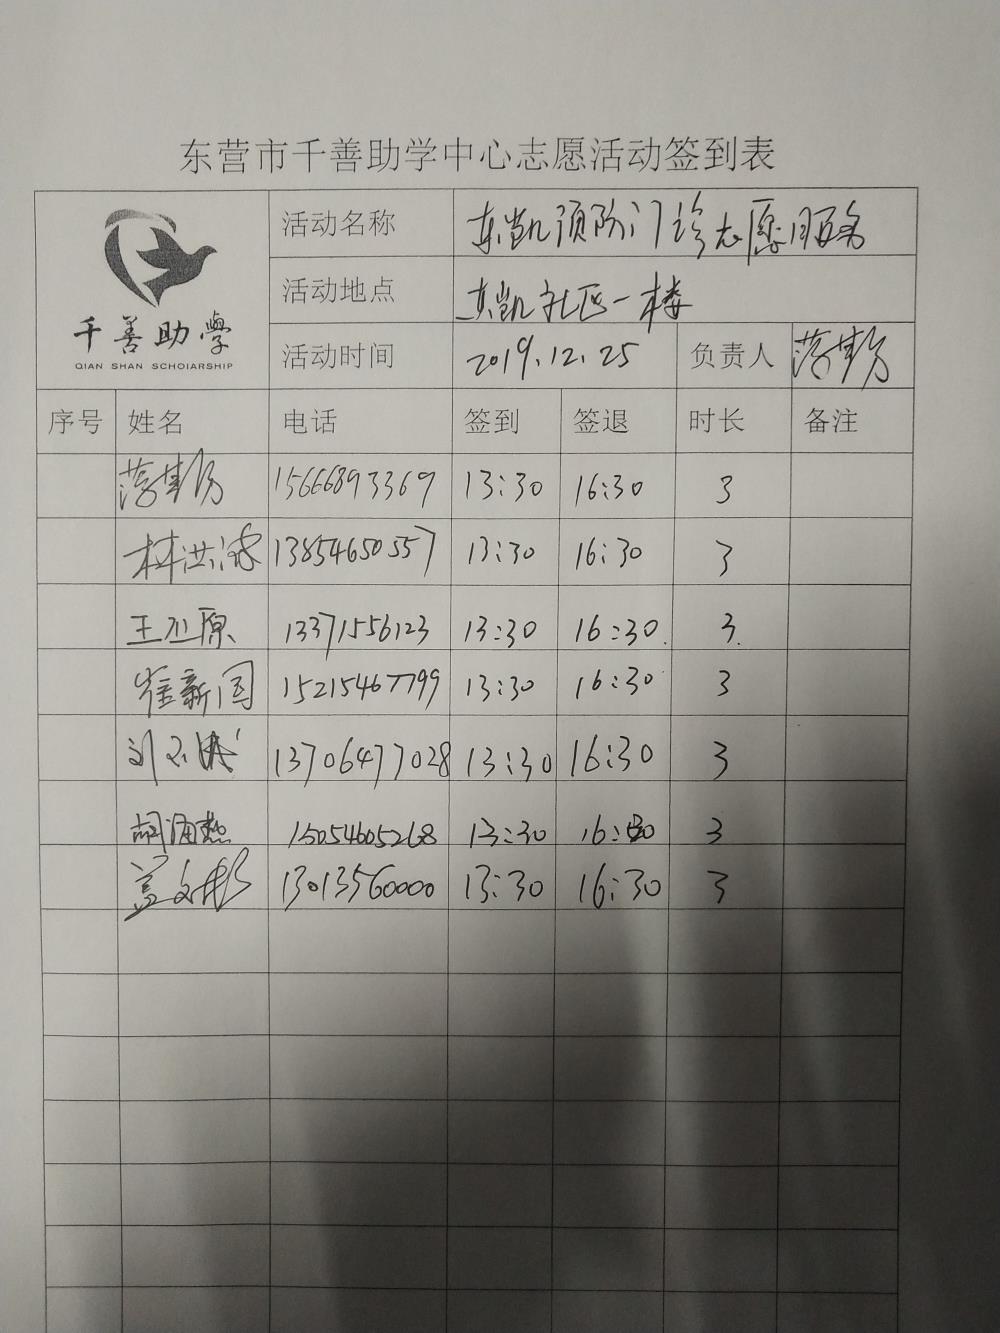 东营市千善助学中心志愿活动签到表
千善助學
QIAN SHAN SCHOIARSHIP
活动名称 东凯预防门诊志愿服务
活动地点 东凯社区一楼
活动时间 2019.12.25 负责人
序号 姓名 电话 签到 签退 时长 备注
15666893369 13:30 16:30 3
林洪 13854650557 13:30 16:30 3
王丕原 13371556123 13:30 16:30. 3.
崔新国 15215467799 13:30 16:30 3
刘 13706477028 13:30 16:30 3
胡海燕 15054605268 13:30 16:30 3
盖文彬 13013560000 13:30 16:30 3